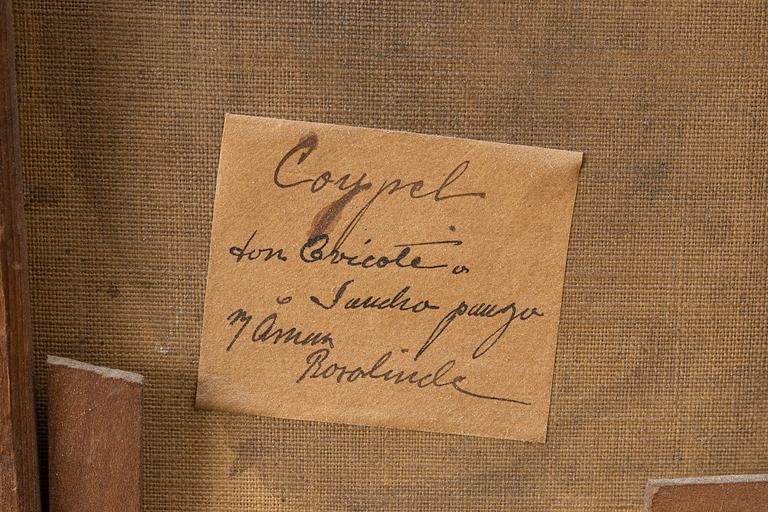 Coypel
don Qvicote o
Sancho panza
Rosalinde